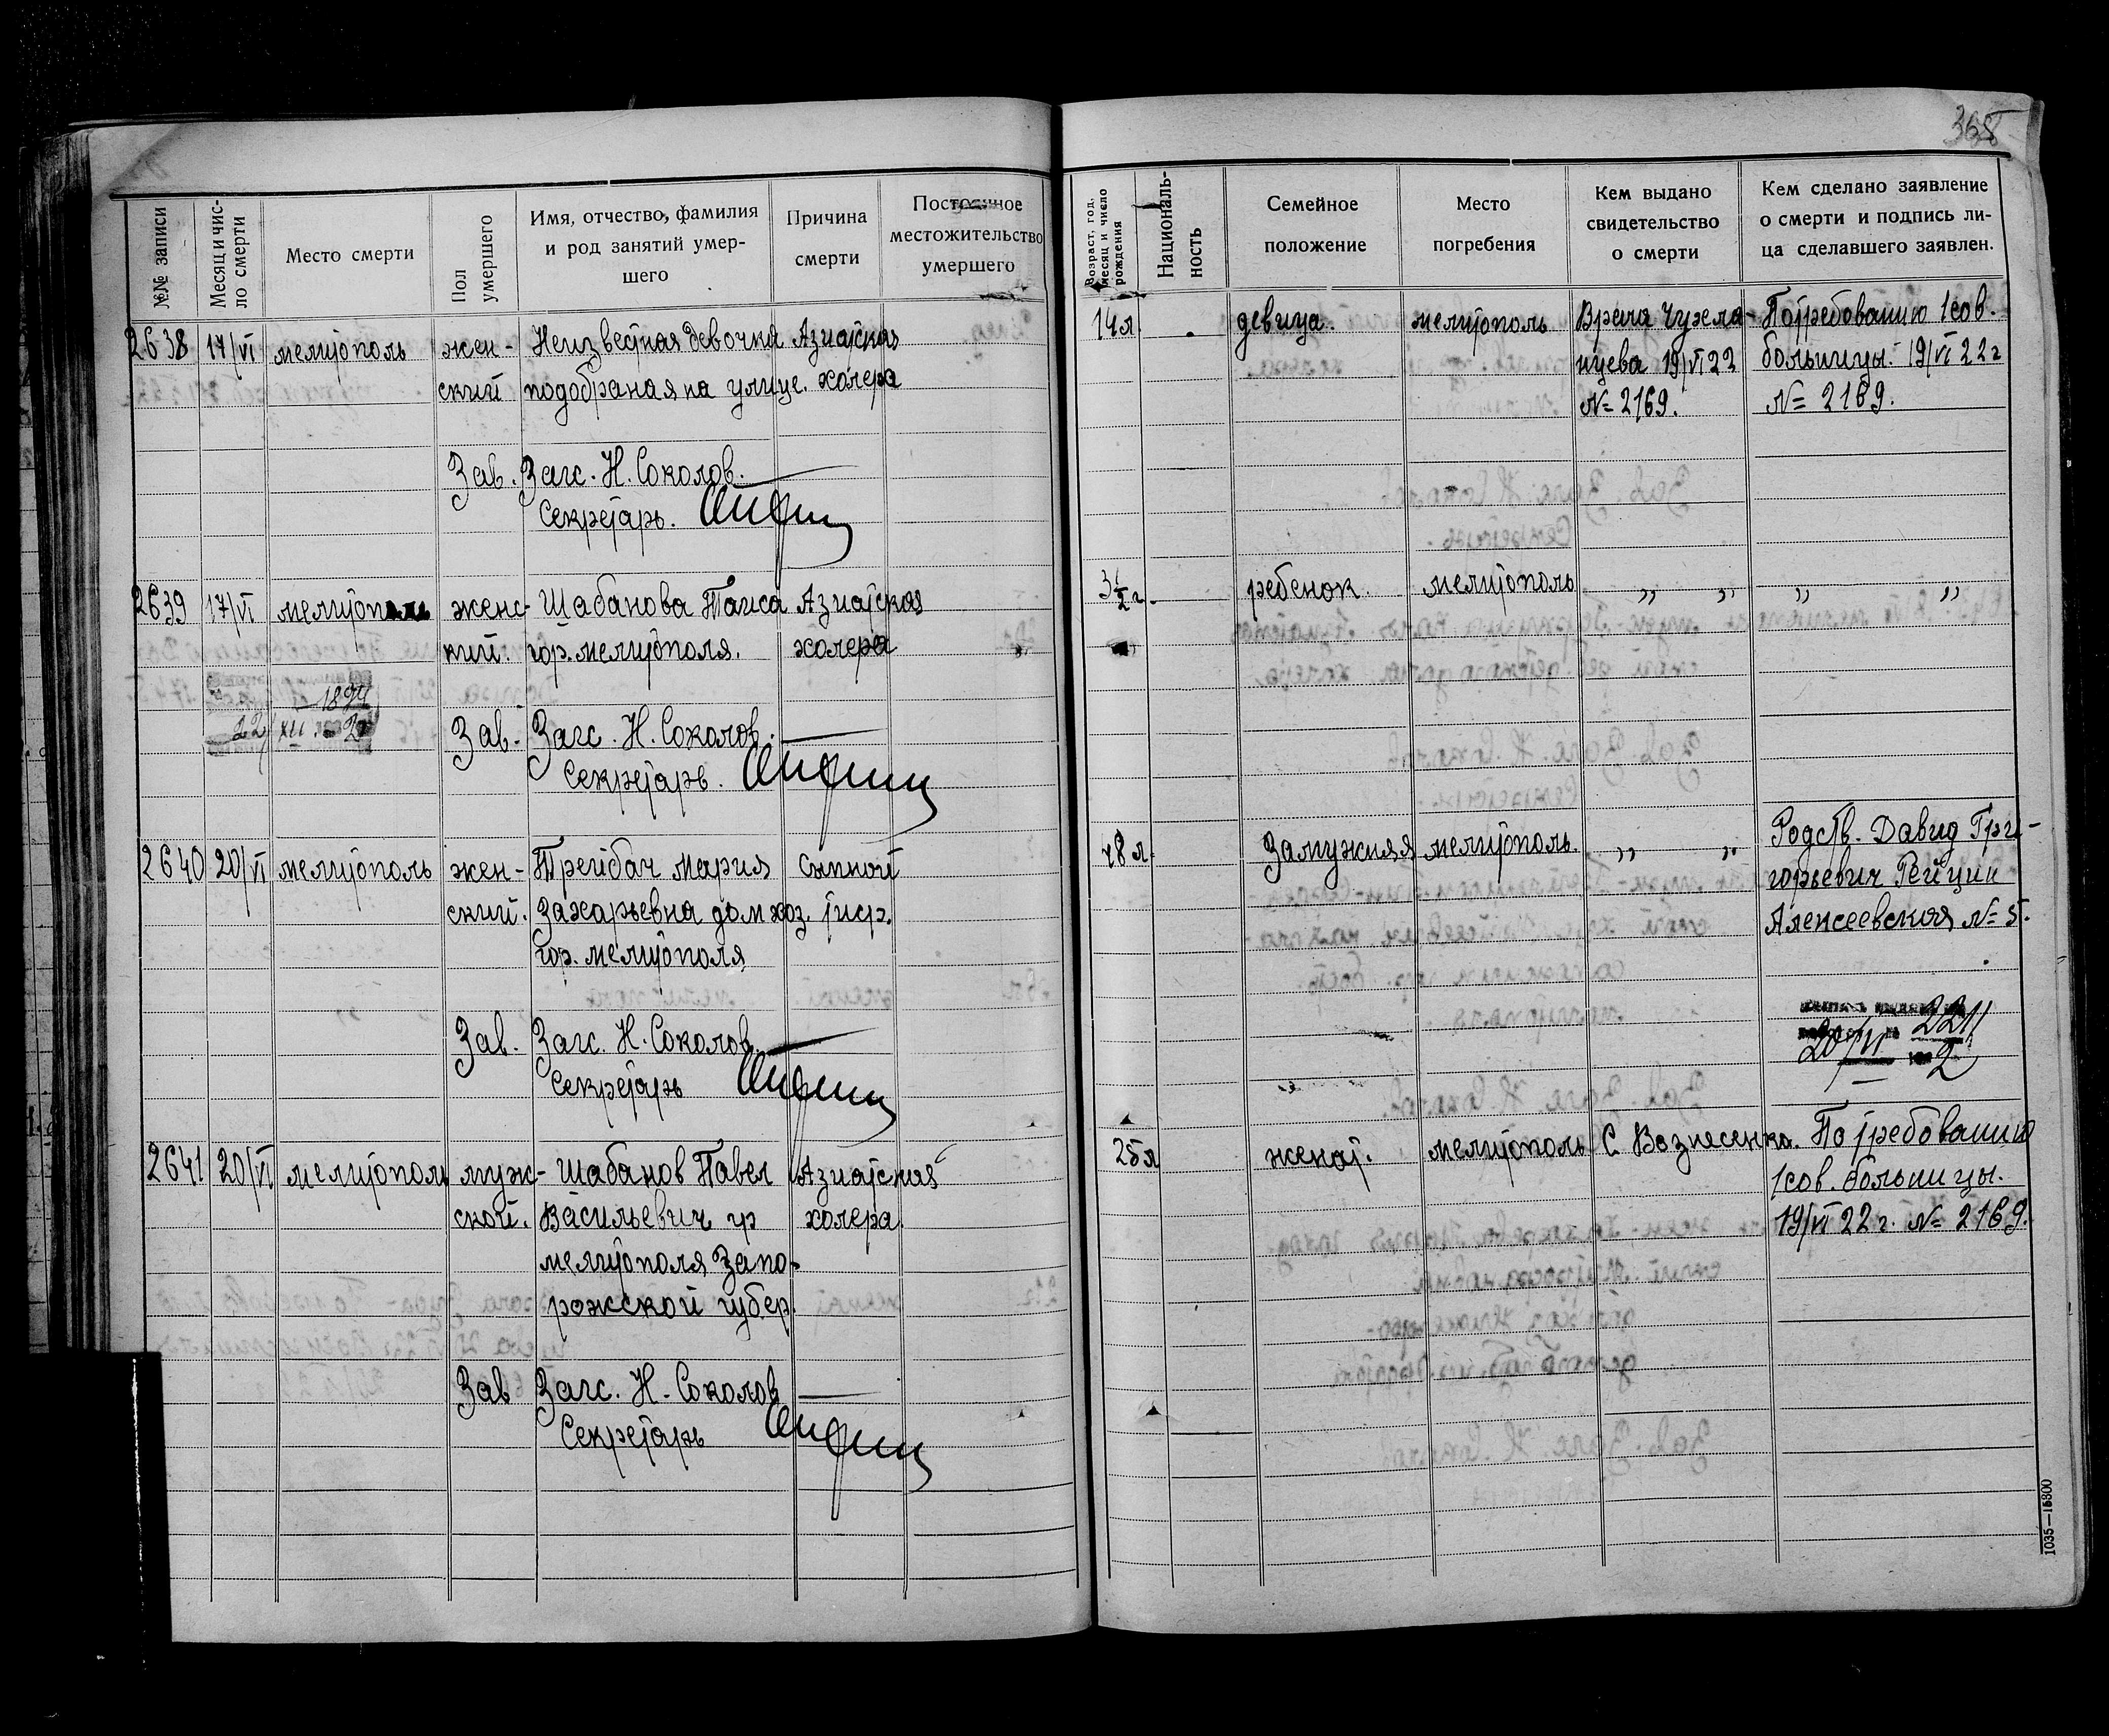 365
№№ записи
Месяц и чис-
ло смерти
Место смерти
Пол
умершего
Имя, отчество, фамилия
и род занятий умер-
шего
Причина
смерти
Постоянное
местожительство
умершего
Возраст, год,
месяц и число
рождения
Националь-
ность
Семейное
положение
Место
погребения
Кем выдано
свидетельство
о смерти
Кем сделано заявление
о смерти и подпись ли-
ца сделавшего заявлен.
2638 17/VI мелитополь жен- Неизвестная девочка Азиатская
ский подобраная на улице. холера
Зав. Загс. Н. Соколов.
Секретарь.
14 л. девица. мелитополь Врача Чужела- По требованию 1 сов.
нцева 19/VI 22 больницы. 19/VI 22 г
№ 2169. № 2169.
2639 17/VI мелитополь женс- Шабанова Таиса Азиатская
кий. гор. мелитополя. холера
1894
22/XII 2
Зав. Загс. Н. Соколов.
Секретарь.
3 1/2 г. ребенок. мелитополь „ „ „ „
2640 20/VI мелитополь жен- Трейбач Мария сыпной
ский. Захарьевна дом хоз. тиф.
гор. мелитополя
Зав. Загс. Н. Соколов
Секретарь
48 л. Замужняя мелитополь. „ „ Родств. Давид Гри-
горьевич Рейцин
Алексеевская № 5.
2211
20/VI 2
2641 20/VI мелитопол муж- Шабанов Павел Азиатская
ской. Васильевич гр холера.
мелитополя Запо-
рожской губер.
Зав Загс. Н. Соколов
Секретарь
25 л женат. мелитополь С. Вознесенка. По требованию
1 сов. больницы.
19/VI 22 г. № 2169.
1035—15800